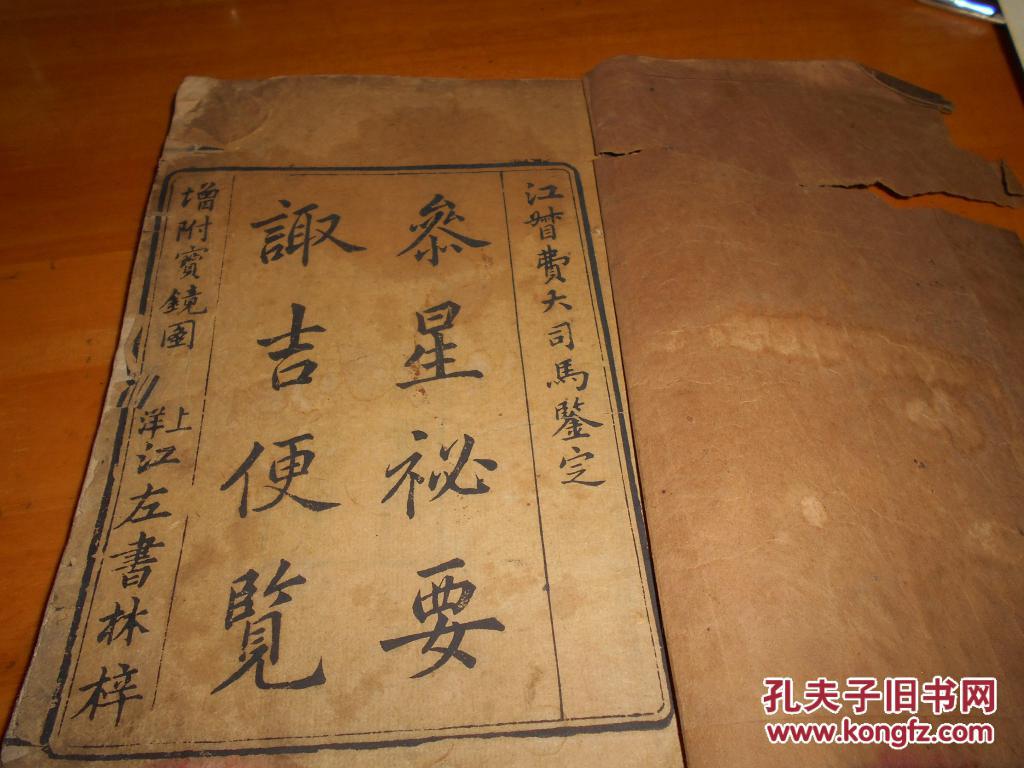 江督費大司馬鑒定
叅星祕要
諏吉便覽
增附寶鏡圖
上洋江左書林梓
孔夫子旧书网
www.kongfz.com